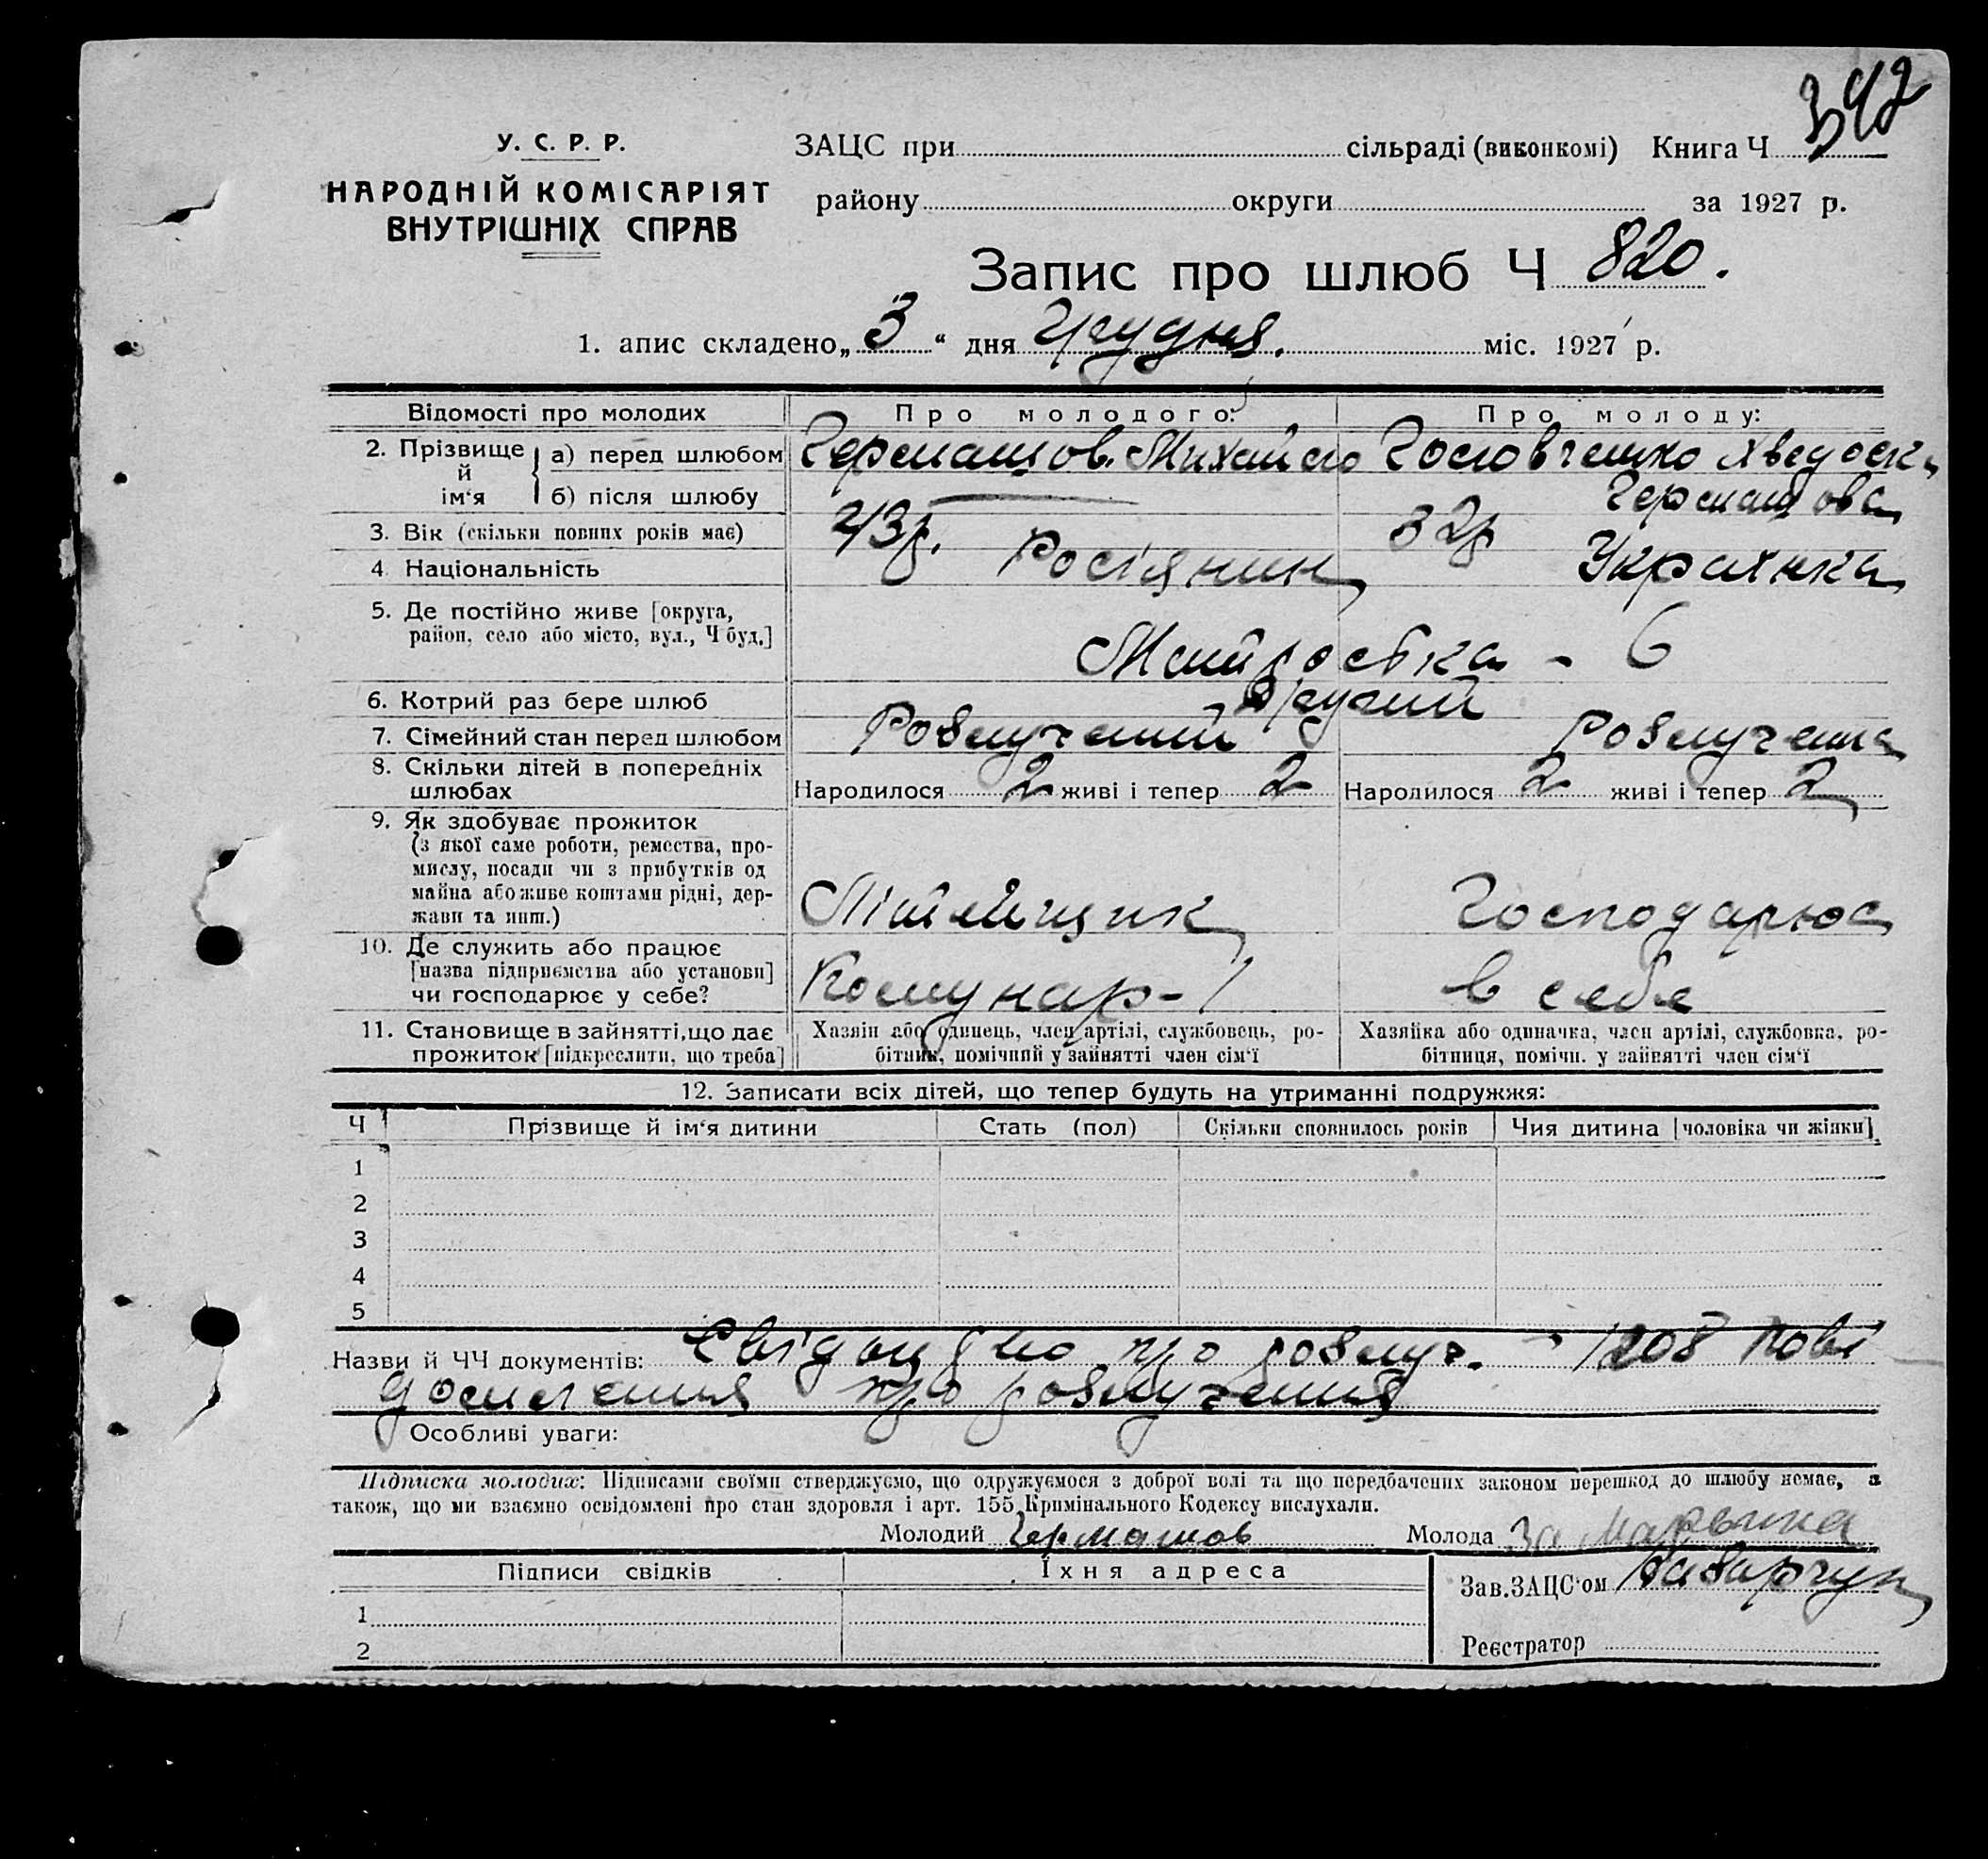 342
У. С. Р. Р.
НАРОДНІЙ КОМІСАРІЯТ
ВНУТРІШНІХ СПРАВ
ЗАЦС при сільраді (виконкомі) Книга Ч
району округи за 1927 р.
Запис про шлюб Ч 820.
1. апис складено „3“ дня Грудня. міс. 1927 р.
Відомості про молодих Про молодого: Про молоду:
2. Прізвище й ім‘я а) перед шлюбом Михайло Головченко
б) після шлюбу
3. Вік (скільки повних років має) 43р. 32р
4 Національність Росіянин Українка
5. Де постійно живе [округа, район, село або місто, вул., Ч буд.] - 6
6. Котрий раз бере шлюб другий
7. Сімейний стан перед шлюбом Розлучений Розлучена
8. Скільки дітей в попередніх шлюбах Народилося 2 живі і тепер 2 Народилося 2 живі і тепер 2
9. Як здобуває прожиток
(з якої саме роботи, ремества, про-
мислу, посади чи з прибутків од
майна або живе коштами рідні, дер-
жави та инш.) Літейщик Господарює
10. Де служить або працює
[назва підприємства або установи]
чи господарює у себе? Комунар- в себе
11. Становище в зайнятті, що дає
прожиток [підкреслити, що треба]
Хазяін або одинець, член артілі, службовець, ро-
бітник, помічний у зайнятті член сім‘ї
Хазяйка або одиначка, член артілі, службовка, ро-
бітниця, помічн. у зайнятті член сім‘ї
12. Записати всіх дітей, що тепер будуть на утриманні подружжя:
Ч Прізвище й ім‘я дитини Стать (пол) Скільки сповнилось років Чия дитина [чоловіка чи жінки]
1
2
3
4
5
Назви й ЧЧ документів: про розлуч. 1208
про розлучення
Особливі уваги:
Підписка молодих: Підписами своїми стверджуємо, що одружуємося з доброї волі та що передбачених законом перешкод до шлюбу немає, а
також, що ми взаємно освідомлені про стан здоровля і арт. 155 Кримінального Кодексу вислухали.
Молодий Молода За
Підписи свідків Їхня адреса
Зав.ЗАЦС‘ом
1
2
Реєстратор